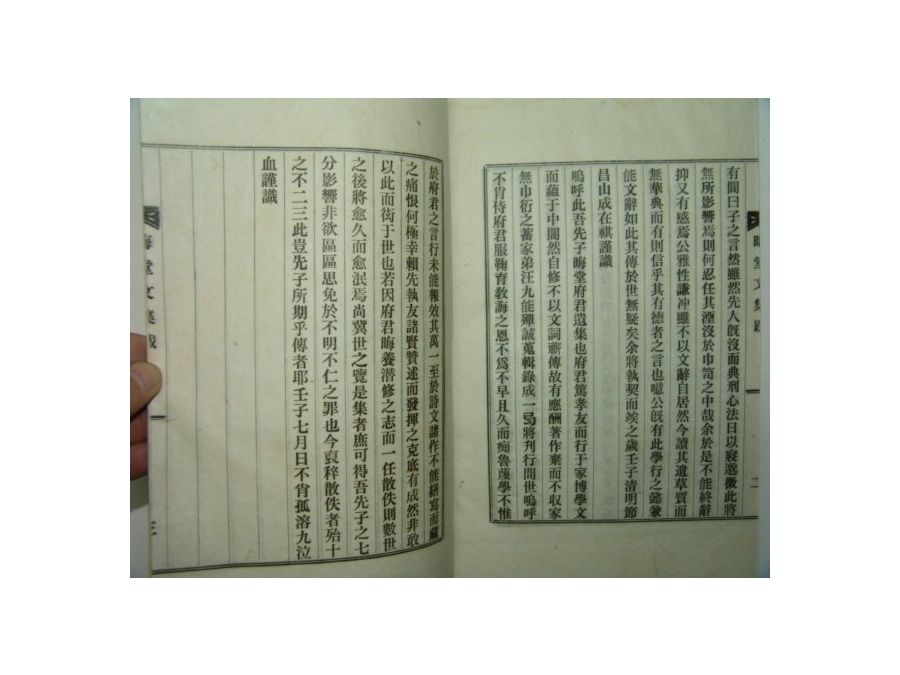 晦堂文集跋
二
有間曰子之言然雖然先人旣沒而典刑心法日以寢邈微此將
無所影響焉則何忍任其湮沒於巾笥之中哉余於是不能終辭
抑又有感焉公雅性謙冲雖不以文辭自居然今讀其遺草質而
無華典而有則信乎其有德者之言也噫公旣有此學行之懿兼
能文辭如此其傳於世無疑矣余將執契而竢之歲壬子清明節
昌山成在祺謹識
嗚呼此吾先子晦堂府君遺集也府君篤孝友而行于家博學文
而蘊于中闇然自修不以文詞蘄傳故有應酬著作棄而不収家
無巾衍之蓄家弟汪九能殫誠蒐輯錄成一弓將刊行問世嗚呼
不肖侍府君服鞠育敎誨之恩不爲不早且久而痴魯蔑學不惟
於府君之言行未能報效其萬一至於詩文諸作不能繕寫而藏
之痛恨何極幸賴先執友諸賢贊述而發揮之克底有成然非敢
以此而衒于世也若因府君晦養潛修之志而一任散佚則數世
之後將愈久而愈泯焉尚冀世之覽是集者庶可得吾先子之七
分影響非欲區區思免於不明不仁之罪也今裒稡散佚者殆十
之不二三此豈先子所期乎傳者耶壬子七月日不肖孤溶九泣
血謹識
晦堂文集跋
三